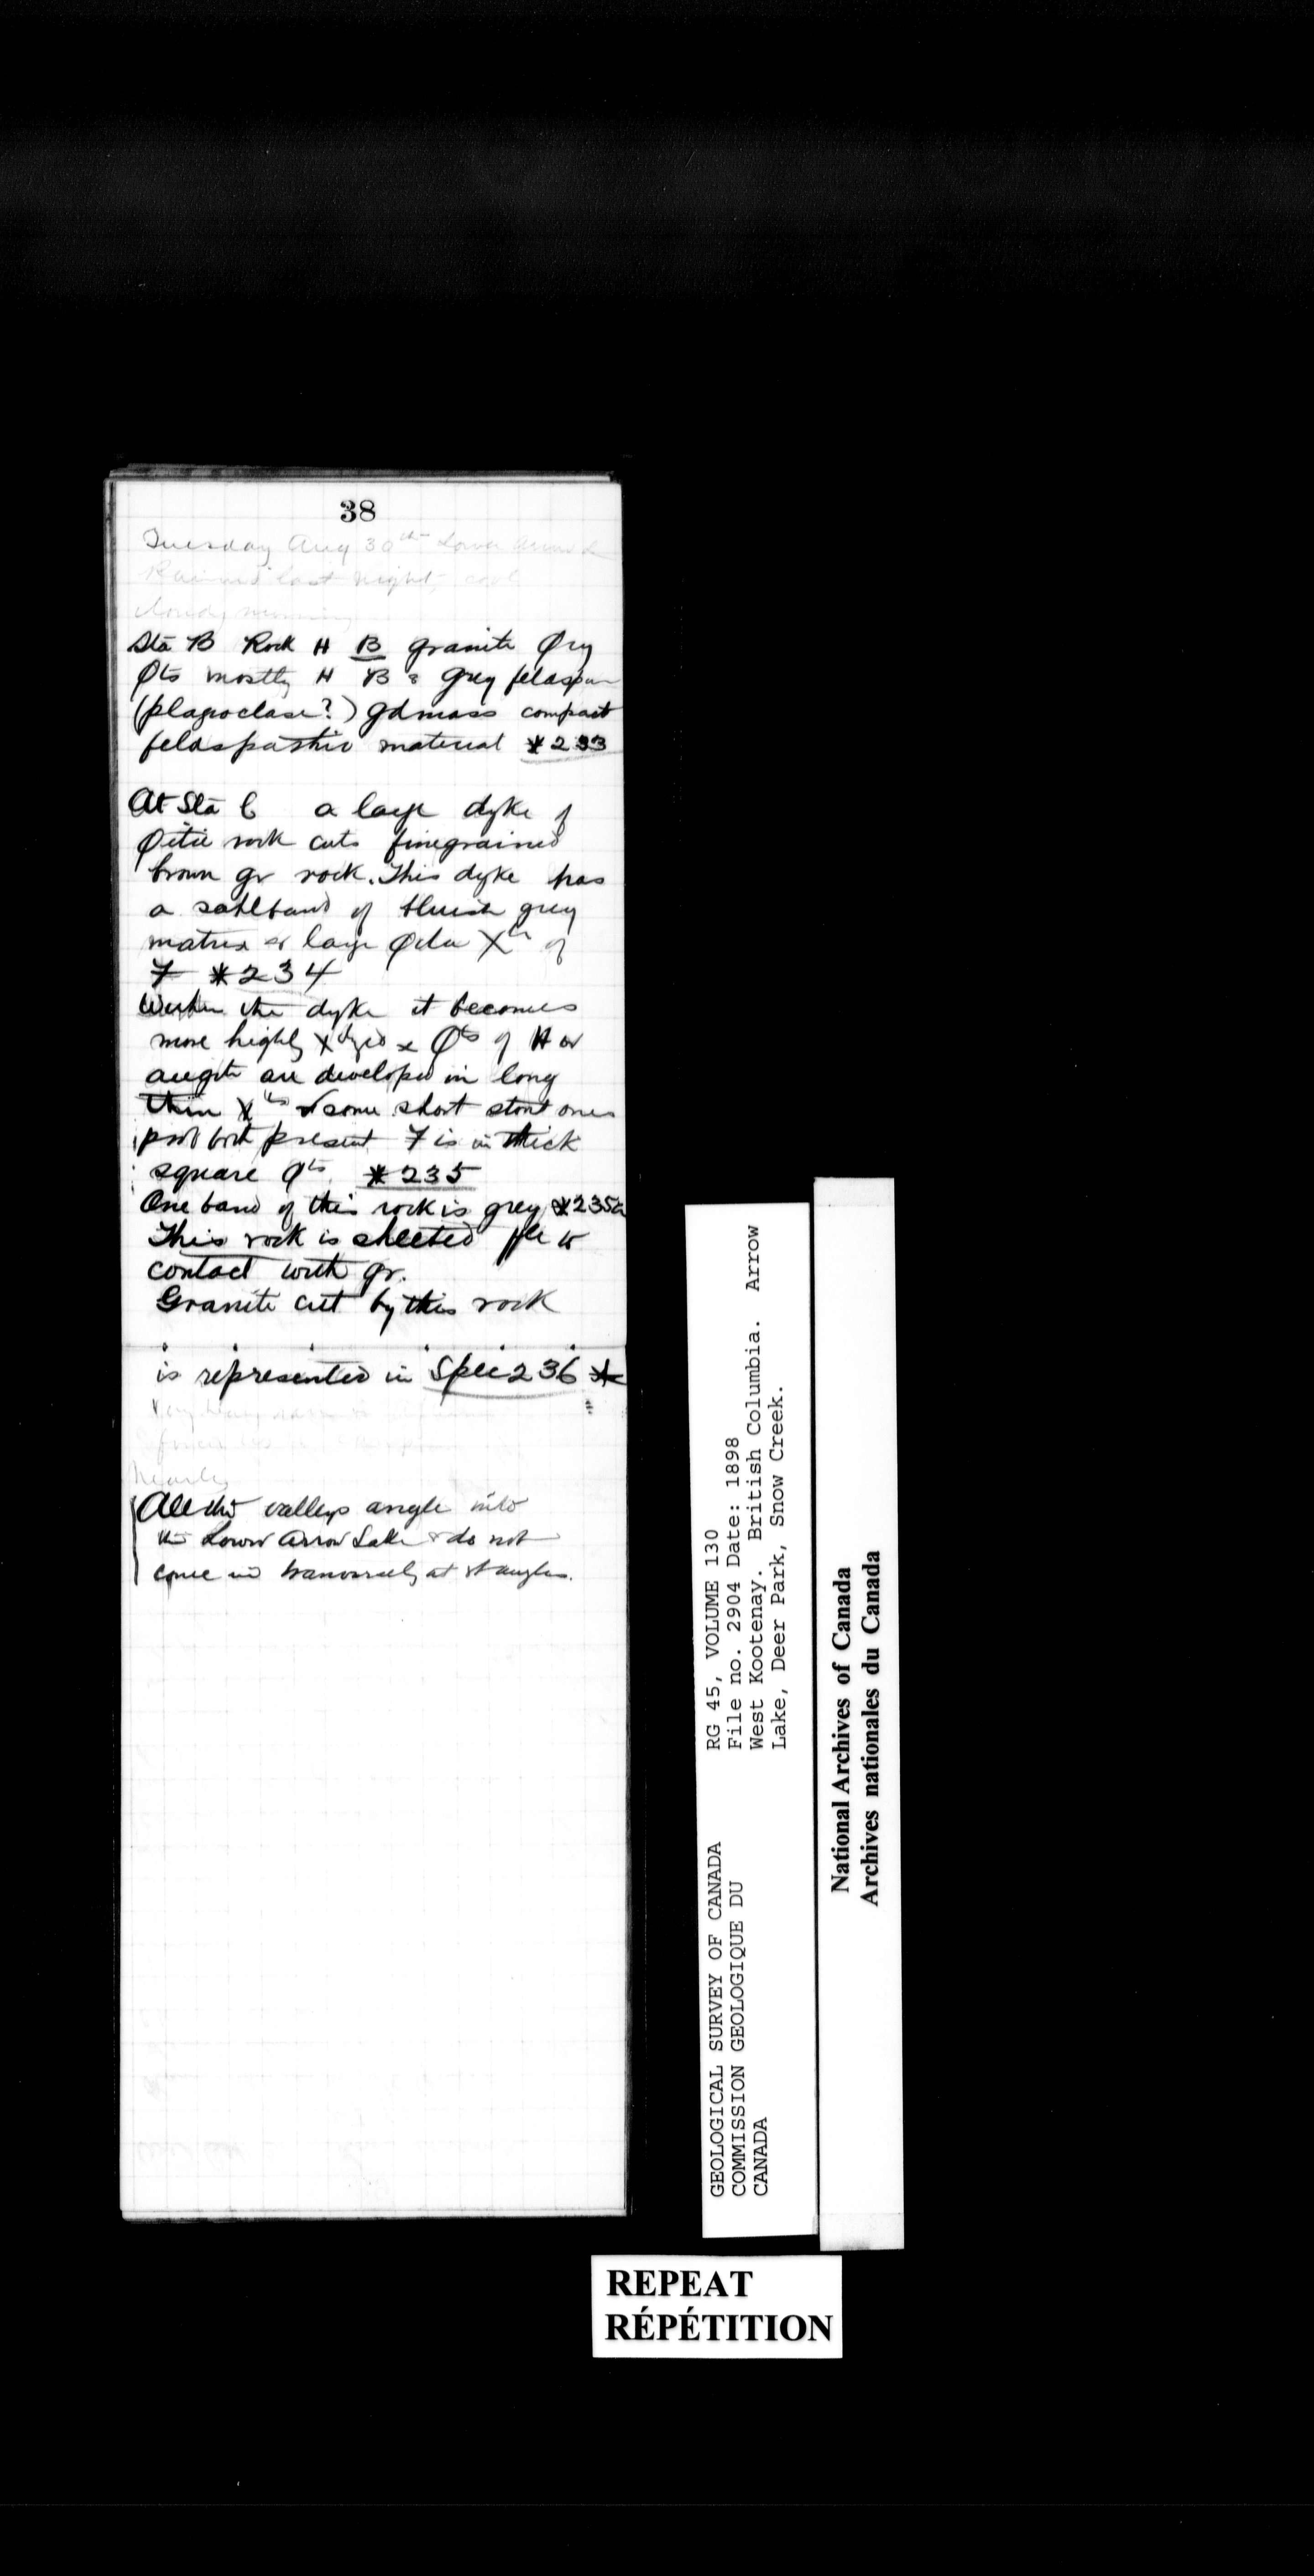 38
Tuesday Aug 30th Lower Arrow L
Rained last night, cool
cloudy morning
Sta B Rock H B granite φry
φts mostly H B & grey feldspar
(plagioclase?) gdmass compact
feldspathic material *233
At Sta C a large dyke of
φitic rock cuts finegrained
brown gr rock. This dyke has
a sahlband of bluish grey
matrix & large φ X of
7 *234
Within the dyke it becomes
more highly Xlyzed & φts of H or
augite are developed in long
thin Xls & some short stout ones
prob both present 7 is in thick
square φts *235
One band of this rock is grey *235a
This rock is sheeted //le to
contact with gr.
Granite cut by this rock
is represented in Spec 236 *
Very
Nearly
All the valleys angle into
the Lower Arrow Lake & do not
come in transversely at rt angles.
GEOLOGICAL SURVEY OF CANADA
COMMISSION GEOLOGIQUE DU
CANADA
RG 45, VOLUME 130
File no. 2904 Date: 1898
West Kootenay. British Columbia. Arrow
Lake, Deer Park, Snow Creek.
National Archives of Canada
Archives nationales du Canada
REPEAT
RÉPÉTITION